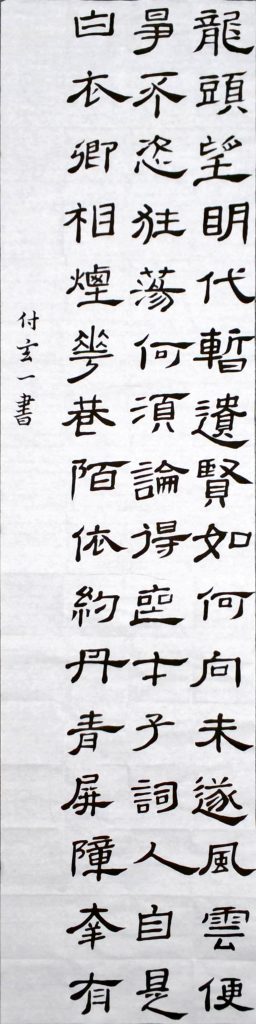 龍頭望明代暫遺賢如何向未遂風雲便
爭不恣狂蕩何須論得喪才子詞人自是
白衣卿相煙華巷陌依約丹青屏障幸有
付玄一書